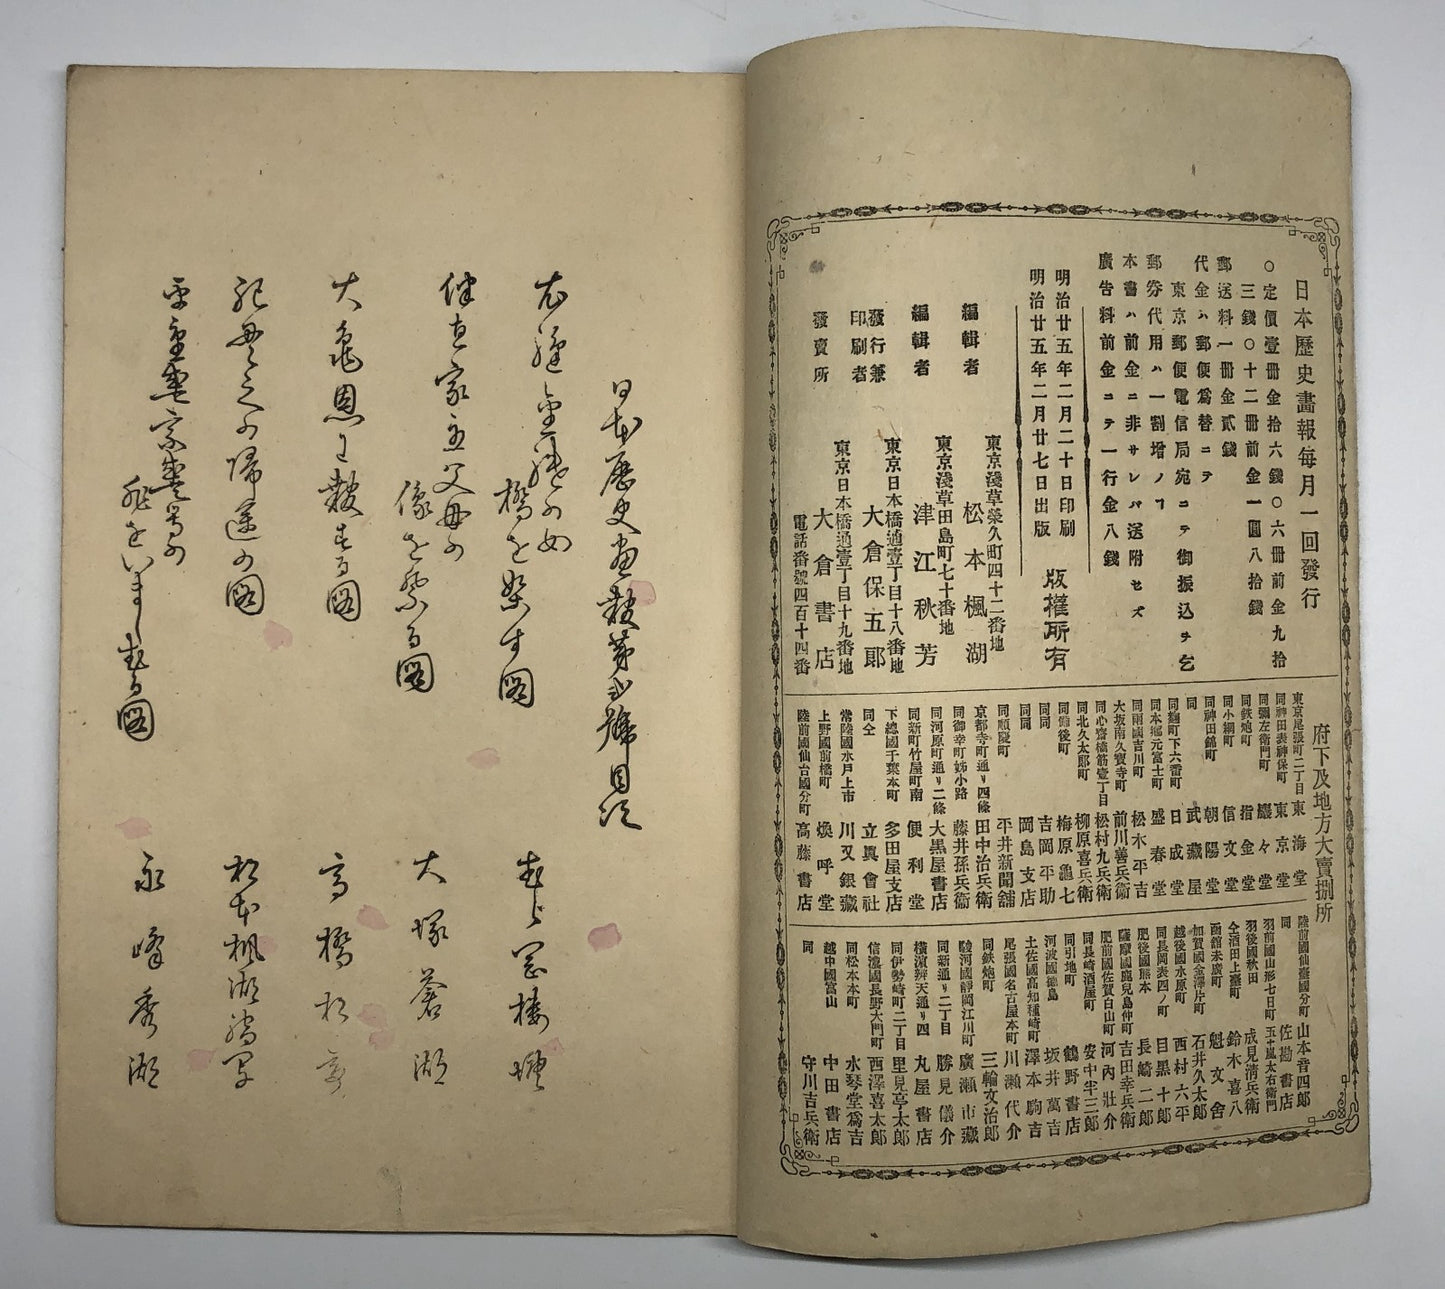 日本歴史畫報毎月一回發行
○定價壹冊金拾六錢○六冊前金九拾
三錢○十二冊前金一圓八拾錢
郵送料一冊金貳錢
代金ハ郵便為替ニテ
東京郵便電信局宛ニテ御振込ヲ乞
郵券代用ハ一割増ノ
本書ハ前金ニ非サレバ送附セズ
廣告料前金ニテ一行金八錢
明治廿五年二月二十日印刷
明治廿五年二月廿七日出版
版權所有
東京淺草榮久町四十二番地
編輯者 松本楓湖
東京淺草田島町七十番地
編輯者 津江秋芳
東京日本橋通壹丁目十八番地
發行兼
印刷者 大倉保五郎
東京日本橋通壹丁目十九番地
發賣所 大倉書店
電話番號四百十四番
府下及地方大賣捌所
東京尾張町二丁目 東海堂
同神田表神保町 東京堂
同彌左衛門町
同鉄炮町 指金堂
同小網町 信文堂
同神田錦町 朝陽堂
同 武藏屋
同麹町下六番町 日成堂
同本郷元富士町 盛春堂
同兩國吉川町 松木平吉
大坂南久寶寺町 前川善兵衞
同心齋橋筋壹丁目 松村九兵衞
同北久太郎町 柳原喜兵衞
同備後町 梅原龜七
同同 吉岡平助
同同 岡島支店
同順慶町 平井新聞舗
京都寺町通り四條 田中治兵衞
同御幸町姉小路 藤井孫兵衞
同河原町通り二條 大黒屋書店
同新町竹屋町南 便利堂
下總國千葉本町 多田屋支店
同仝 立眞會社
常陸國水戸上市 川又銀藏
上野國前橋町 煥呼堂
陸前國仙台國分町 高藤書店
陸前國仙臺國分町 山本音四郎
同 佐勘書店
羽前國山形七日町 五十嵐太右衛門
羽後國秋田 成見清兵衛
仝酒田上臺町 鈴木喜八
函館末廣町 魁文舎
加賀國金澤片町 石井久太郎
越後國水原町 西村六平
同長岡表四ノ町 目黒十郎
肥後國熊本 長崎二郎
薩摩國鹿兒島仲町 吉田幸兵衛
肥前國佐賀白山町 河内壯介
同長崎酒屋町 安中半三郎
同引地町 鶴野書店
河波國德島 坂井萬吉
土佐國高知種崎町 澤本駒吉
尾張國名古屋本町 川瀬代介
同鉄炮町 三輪文治郎
駿河國靜岡江川町 廣瀬市藏
同新通り二丁目 勝見儀介
橫濱辨天通り四 丸屋書店
同伊勢崎町二丁目 里見亭太郎
信濃國長野大門町 西澤喜太郎
同松本本町 水琴堂爲吉
越中國富山 中田書店
同 守川吉兵衛
日本歴史畫報第弐號目次
橋を架す圖
伴直家主父母の
像を祭る圖 大塚蒼湖
大亀恩に報する圖 高橋松亭
紀母之の帰途の圖 松本楓湖
圖 永峰秀湖